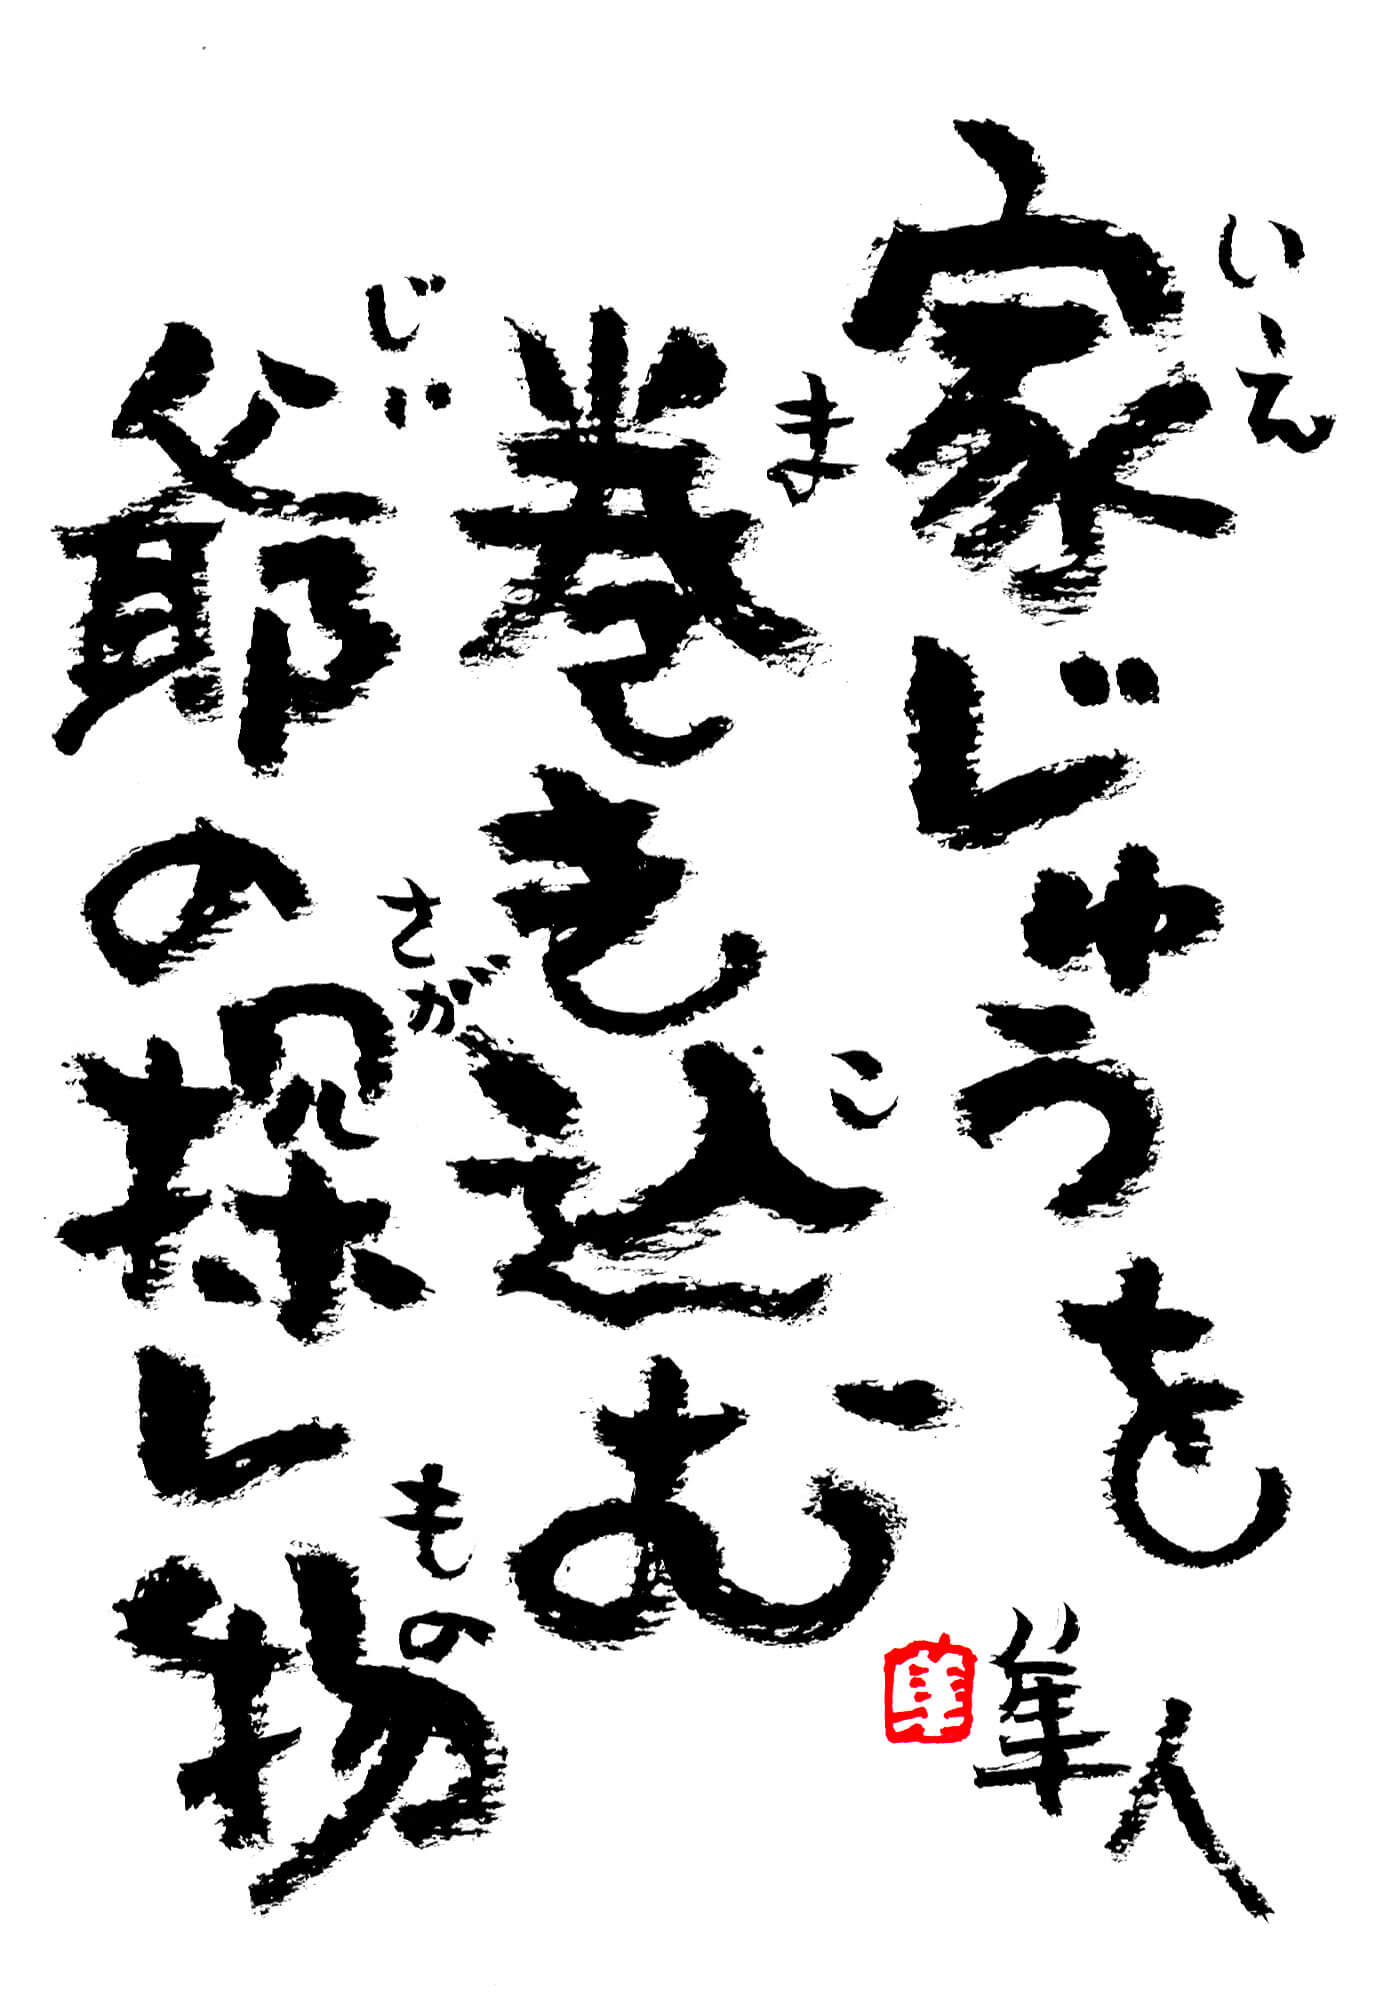 家じゅうを
いえ
巻き込む
ま
こ
爺の探し物
じい
さが
もの
隼人
隼